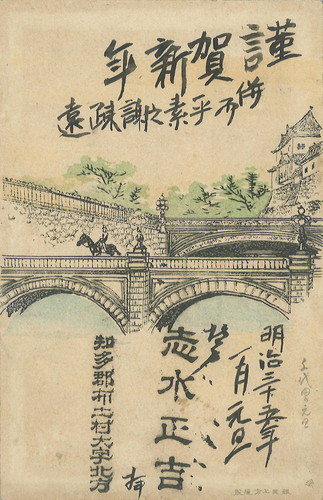 謹賀新年
併而平素之謝疎遠
明治三十五年
一月元旦
志水正吉
知多郡布土村大字北方
拝